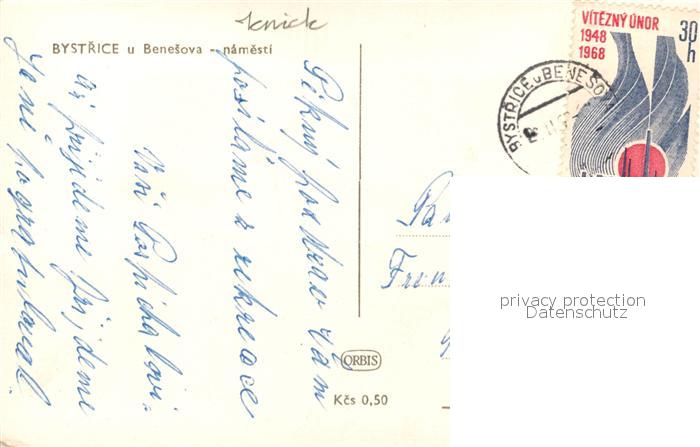 knick
BYSTŘICE u Benešova – náměstí
Pěkný pozdrav Vám
posíláme z rekreace
Vaši Pospíchalovi.
Až přijdeme přijdeme
Janě pogratulovat.
VÍTĚZNÝ ÚNOR
1948
1968
30
h
BYSTŘICE u BENEŠOV
ORBIS
Kčs 0,50
privacy protection
Datenschutz